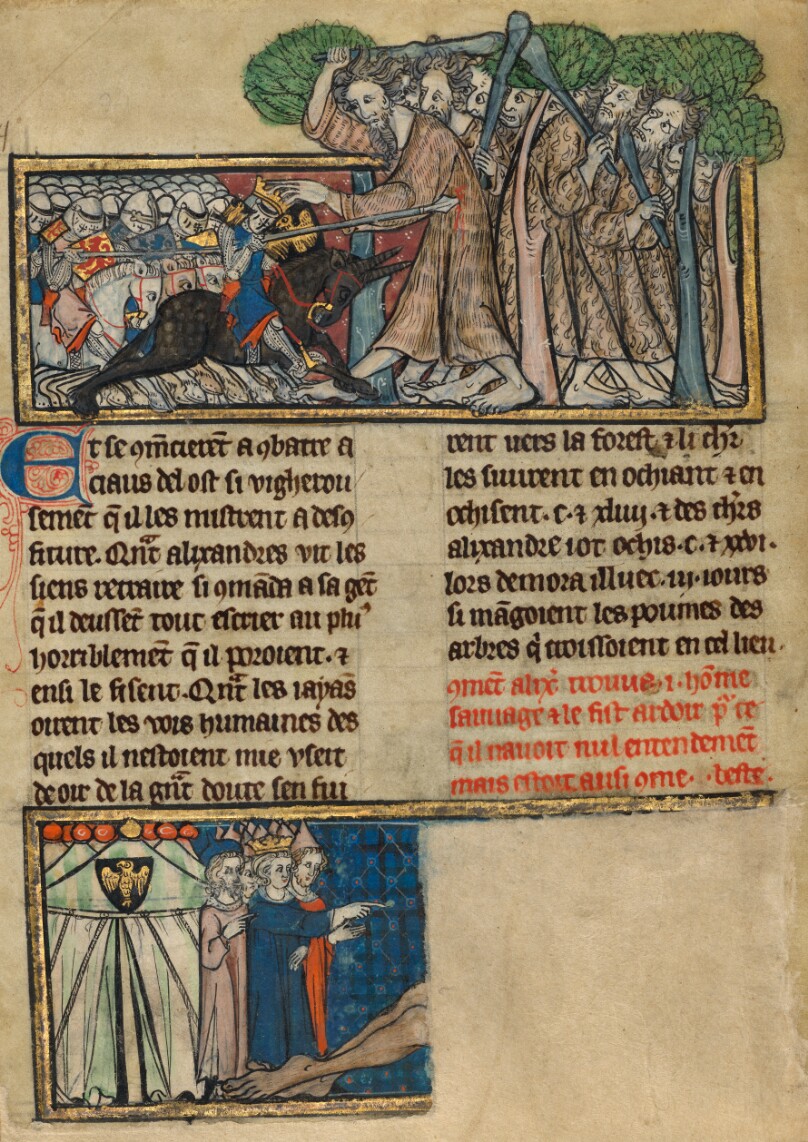 Et se 9mēcierēt a 9batre a
ciaus del ost si vigherou
semēt q̄ il les mistrent a des9
fiture. Qn̄t alixandres vit les
siens retraire si 9māda a sa gēt
q̄ il deussēt tout escrier au plꝰ
horriblemēt q̄ il poroient. ⁊
ensi le fisent. Qn̄t les iaÿas
oirent les vois humaines des
quels il nestoient mie vseit
de oir de la grāt doute sen fui
rent vers la forest ⁊ li chr̄
les suiuent en ochiant ⁊ en
ochisent. c. ⁊ xliiij. ⁊ des chr̄s
alixandre iot ochis. c. ⁊ xxvi.
lors demora illuec. iij. iours
si māgoient les poumes des
arbres q̄ croissoient en cel lieu.
9mēt alix̄. trouue. i. hōme
sauuage ⁊ le fist ardoir p̄ ce
q̄ il nauoit nul entendemēt
mais estoit ausi 9me. beste.